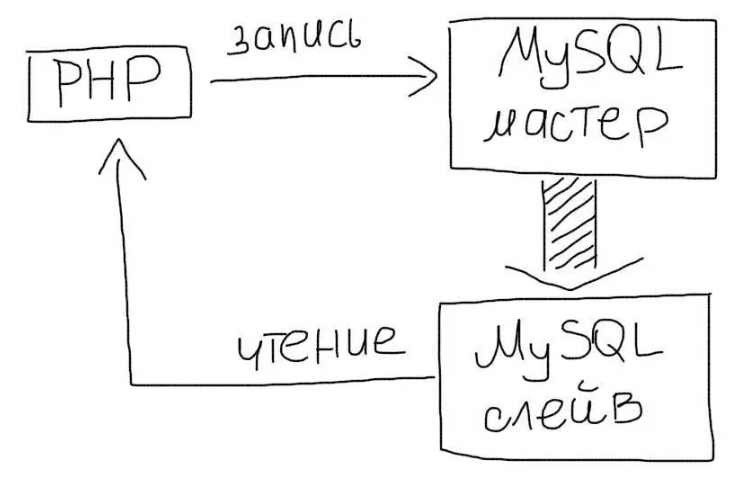 запись
PHP
MySQL
мастер
чтение
MySQL
слейв